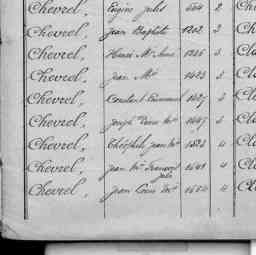 Chevrel, Eugène Jules 554 2 Cl
Chevrel, Jean Baptiste 1202 3 Cl
Chevrel, Henri Mie Anne 1226 3 Cla
Chevrel, Jean Mie 1423 3 Cla
Chevrel, Constant Emmanuel 1427 3 Cla
Chevrel, Joseph Mie 1447 3 Cla
Chevrel, Théophile Jean Mie 4 Cla
Chevrel, Jean Mie François 1641 4 Cla
Chevrel, Jean Louis Mie 4 Cla